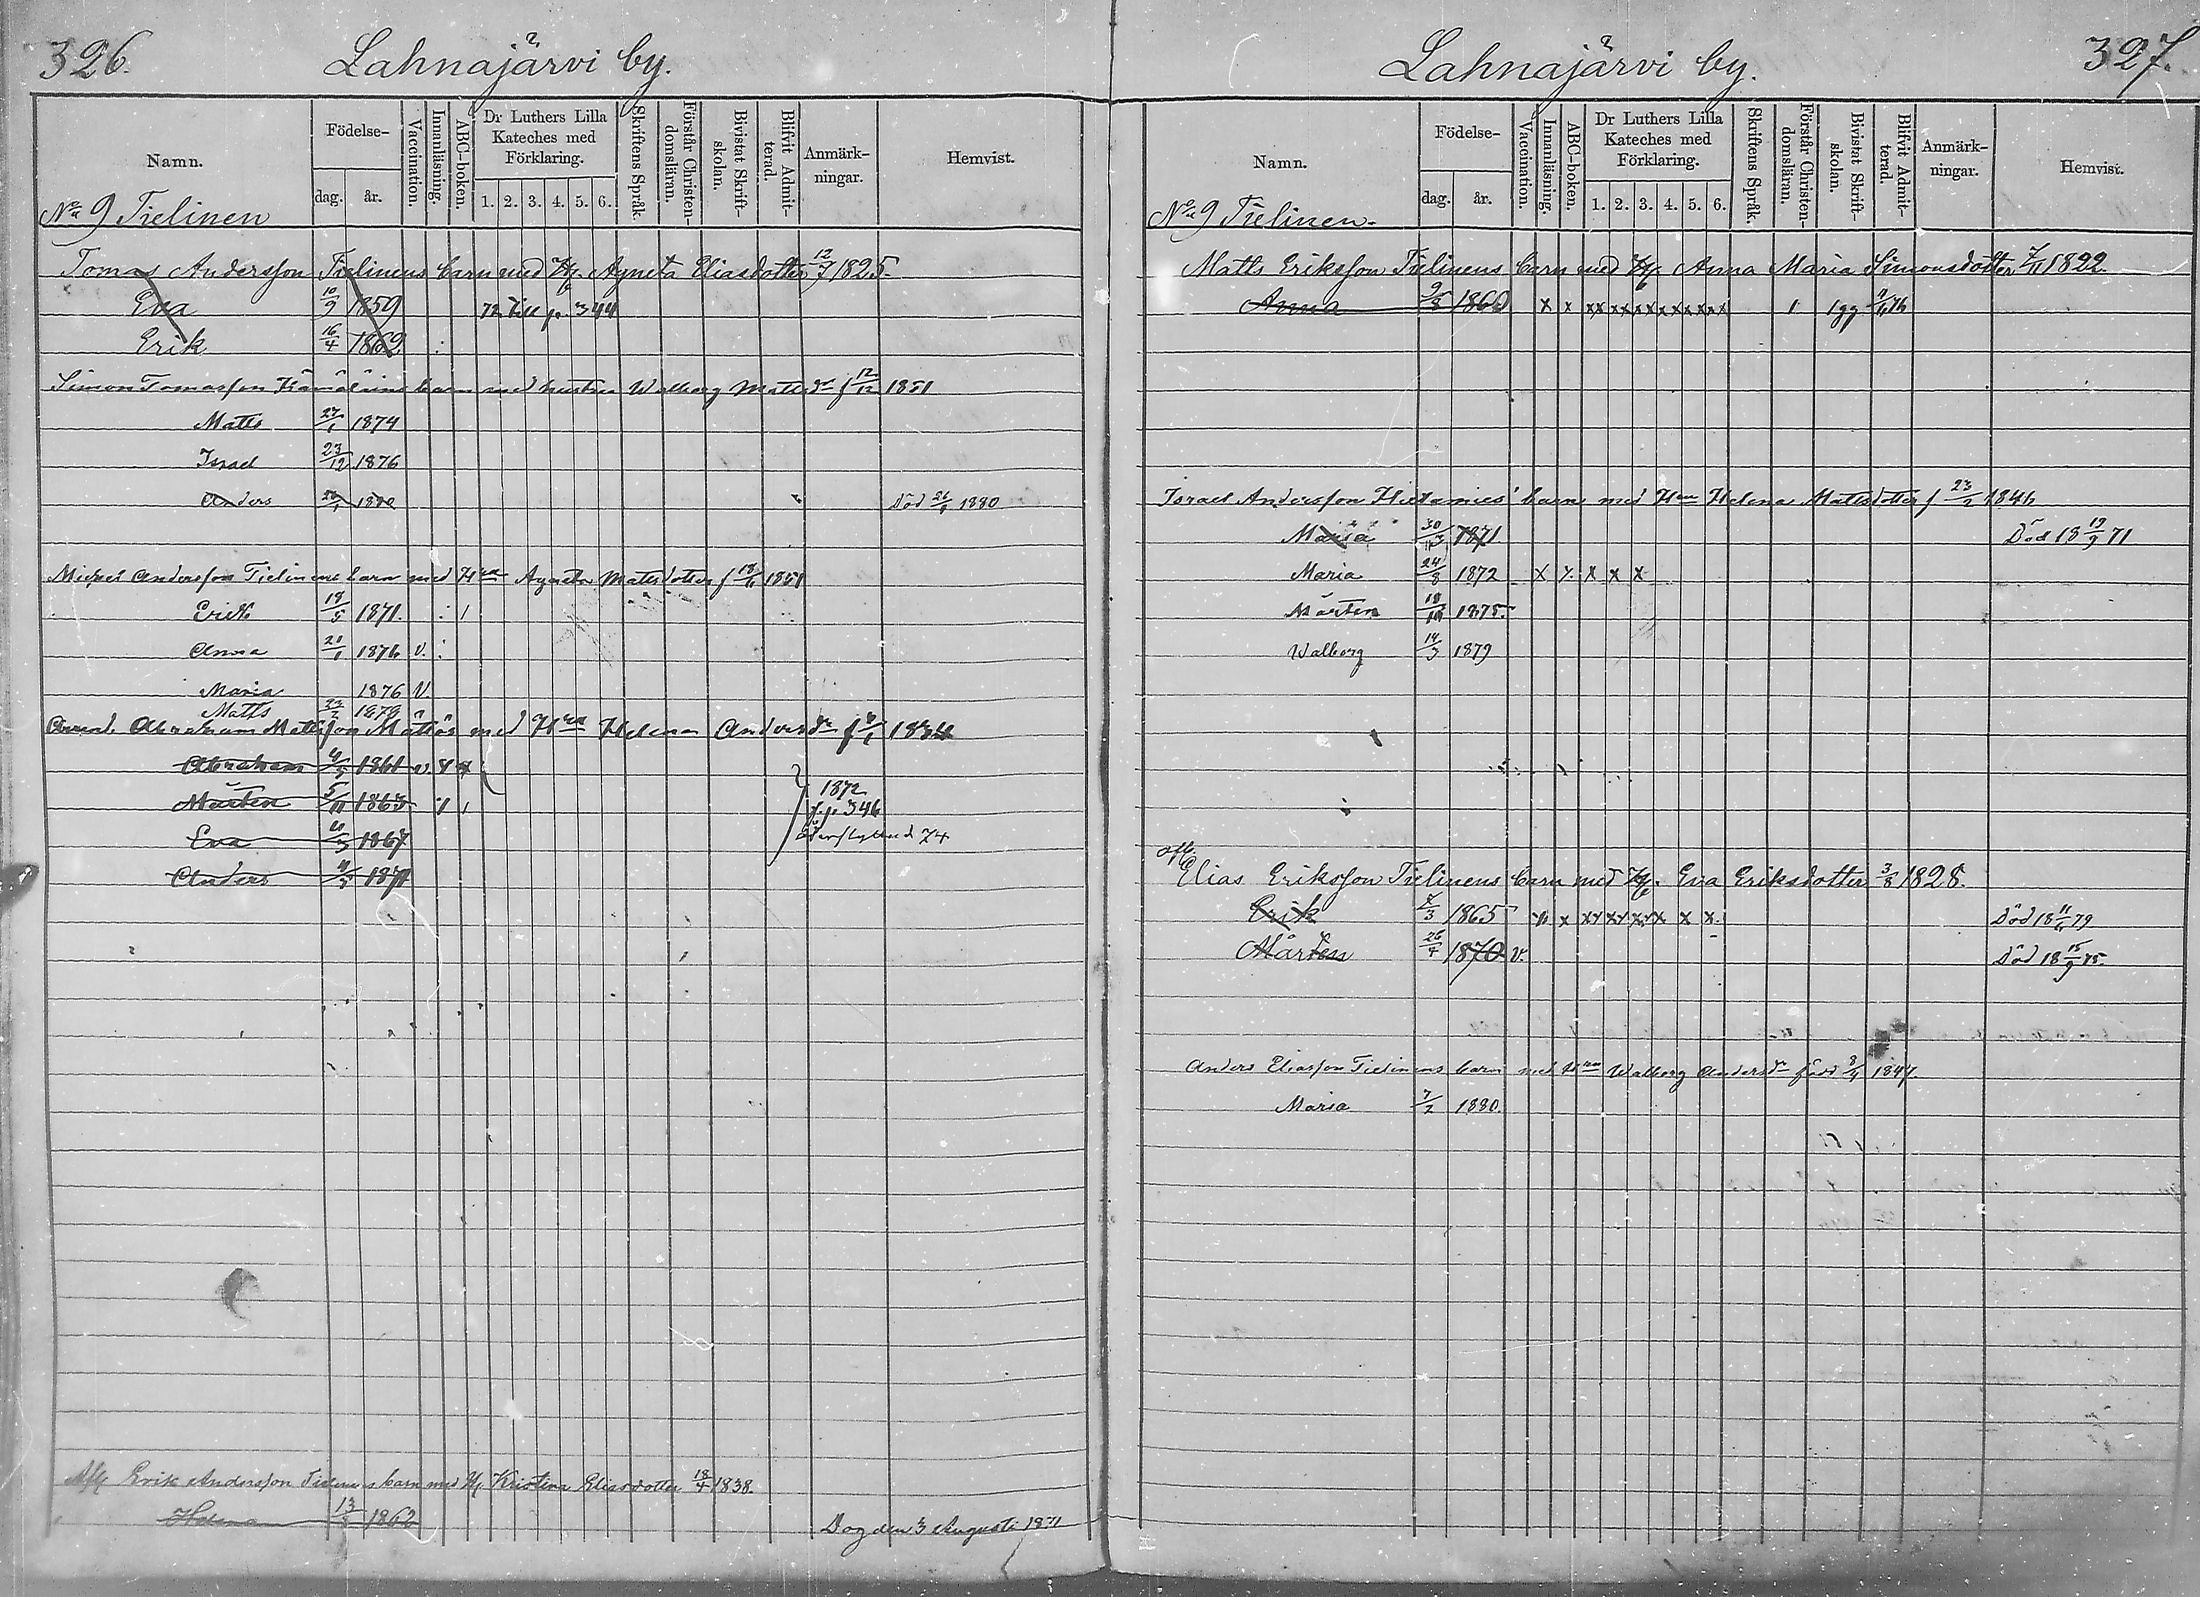 326.
Lahnajärvi by.
Namn.
Födelse-
dag.
år.
Vaccination.
Innanläsning.
ABC-boken.
Dr Luthers Lilla
Kateches med
Förklaring.
1. 2. 3. 4. 5. 6.
Skriftens Språk.
Förstår Christen-
domsläran.
Bivistat Skrift-
skolan.
Blifvit Admit-
terad.
Anmärk-
ningar.
Hemvist.
No 9 Tielinen
Tomas Andersson Tielinens barn med H. Agneta Eliasdotter 12/7 1825
Eva 10/9 1859 72 till p. 344
Erik 16/4 1862
Simon Tomasson barn med hustru Walborg Matsdr f 12/12 1851
Matts 27/1 1874
Israel 23/12 1876
Anders 1880 Död 26/1 1880
Michel Andersson Tielinens barn med Hru Agneta Matsdotter f 18/11 1851
Erik 18/5 1871.
Anna 21/1 1876 v.
Maria 1876 v.
Matts 22/2 1879
Abraham Mattsson med Hru Helena Andersdr f 1834
Abraham 1861 v. x x
Mårten 5/11 1863
1872
f.p. 346
Eva 1867
öfverflyttad 74
Anders 1871
Afl. Erik Andersson Tielinens barn med H. Kristina Eliasdotter 18/4 1838.
Helena 1862 Dog den 3 Augusti 1871
327.
Lahnajärvi by.
Namn.
Födelse-
dag.
år.
Vaccination.
Innanläsning.
ABC-boken.
Dr Luthers Lilla
Kateches med
Förklaring.
1. 2. 3. 4. 5. 6.
Skriftens Språk.
Förstår Christen-
domsläran.
Bivistat Skrift-
skolan.
Blifvit Admit-
terad.
Anmärk-
ningar.
Hemvist.
No 9 Tielinen.
Matts Eriksson Tielinens barn med H. Anna Maria Simonsdotter 7/11 1822
Anna 9/8 1860 x x xx xx xx xx xx xx 1 1gg
Israel Andersson Hietanies' barn med Hru Helena Mattsdotter f 23/2 1846
Maria 1871 Död 18 19/9 71
Maria 24/8 1872 x x x x x
Mårten 18/10 1875
Walborg 14/3 1879
afl.
Elias Eriksson Tielinens barn med H. Eva Eriksdotter 3/8 1828.
Erik 1865 x xx xx xx x x Död 18 11/6 79
Mårten 26/4 1870 v. Död 18 15/9 75.
Anders Eliasson Tielinens barn med Hru Walborg Andersdr född 8/4 1847.
Maria 7/2 1880.